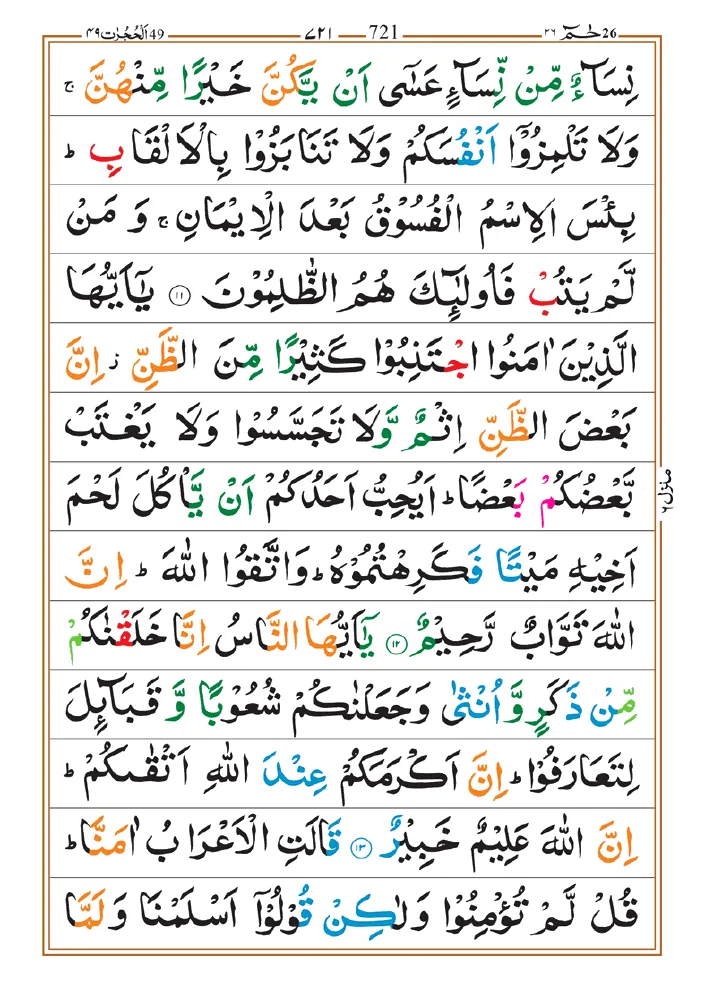 26 حٰمٓ ٢٦ — 721 — ٧٢١ — اَلْحُجُرٰت 49 ٤٩
نِسَآءٌ مِّنْ نِّسَآءٍ عَسٰٓى اَنْ يَّكُنَّ خَيْرًا مِّنْهُنَّ ۚ
وَلَا تَلْمِزُوْٓا اَنْفُسَكُمْ وَلَا تَنَابَزُوْا بِالْاَلْقَابِ ؕ
بِئْسَ الِاسْمُ الْفُسُوْقُ بَعْدَ الْاِيْمَانِ ۚ وَ مَنْ
لَّمْ يَتُبْ فَاُولٰٓئِكَ هُمُ الظّٰلِمُوْنَ ۝١١ يٰٓاَيُّهَا
الَّذِيْنَ اٰمَنُوا اجْتَنِبُوْا كَثِيْرًا مِّنَ الظَّنِّ ز اِنَّ
بَعْضَ الظَّنِّ اِثْمٌ وَّلَا تَجَسَّسُوْا وَلَا يَغْتَبْ
بَّعْضُكُمْ بَعْضًا ؕ اَيُحِبُّ اَحَدُكُمْ اَنْ يَّاْكُلَ لَحْمَ
اَخِيْهِ مَيْتًا فَكَرِهْتُمُوْهُ ؕ وَاتَّقُوا اللّٰهَ ؕ اِنَّ
اللّٰهَ تَوَّابٌ رَّحِيْمٌ ۝١٢ يٰٓاَيُّهَا النَّاسُ اِنَّا خَلَقْنٰكُمْ
مِّنْ ذَكَرٍ وَّ اُنْثٰى وَجَعَلْنٰكُمْ شُعُوْبًا وَّ قَبَآئِلَ
لِتَعَارَفُوْا ؕ اِنَّ اَكْرَمَكُمْ عِنْدَ اللّٰهِ اَتْقٰىكُمْ ؕ
اِنَّ اللّٰهَ عَلِيْمٌ خَبِيْرٌ ۝١٣ قَالَتِ الْاَعْرَابُ اٰمَنَّا ؕ
قُلْ لَّمْ تُؤْمِنُوْا وَلٰكِنْ قُوْلُوْٓا اَسْلَمْنَا وَلَمَّا
منزل ٦